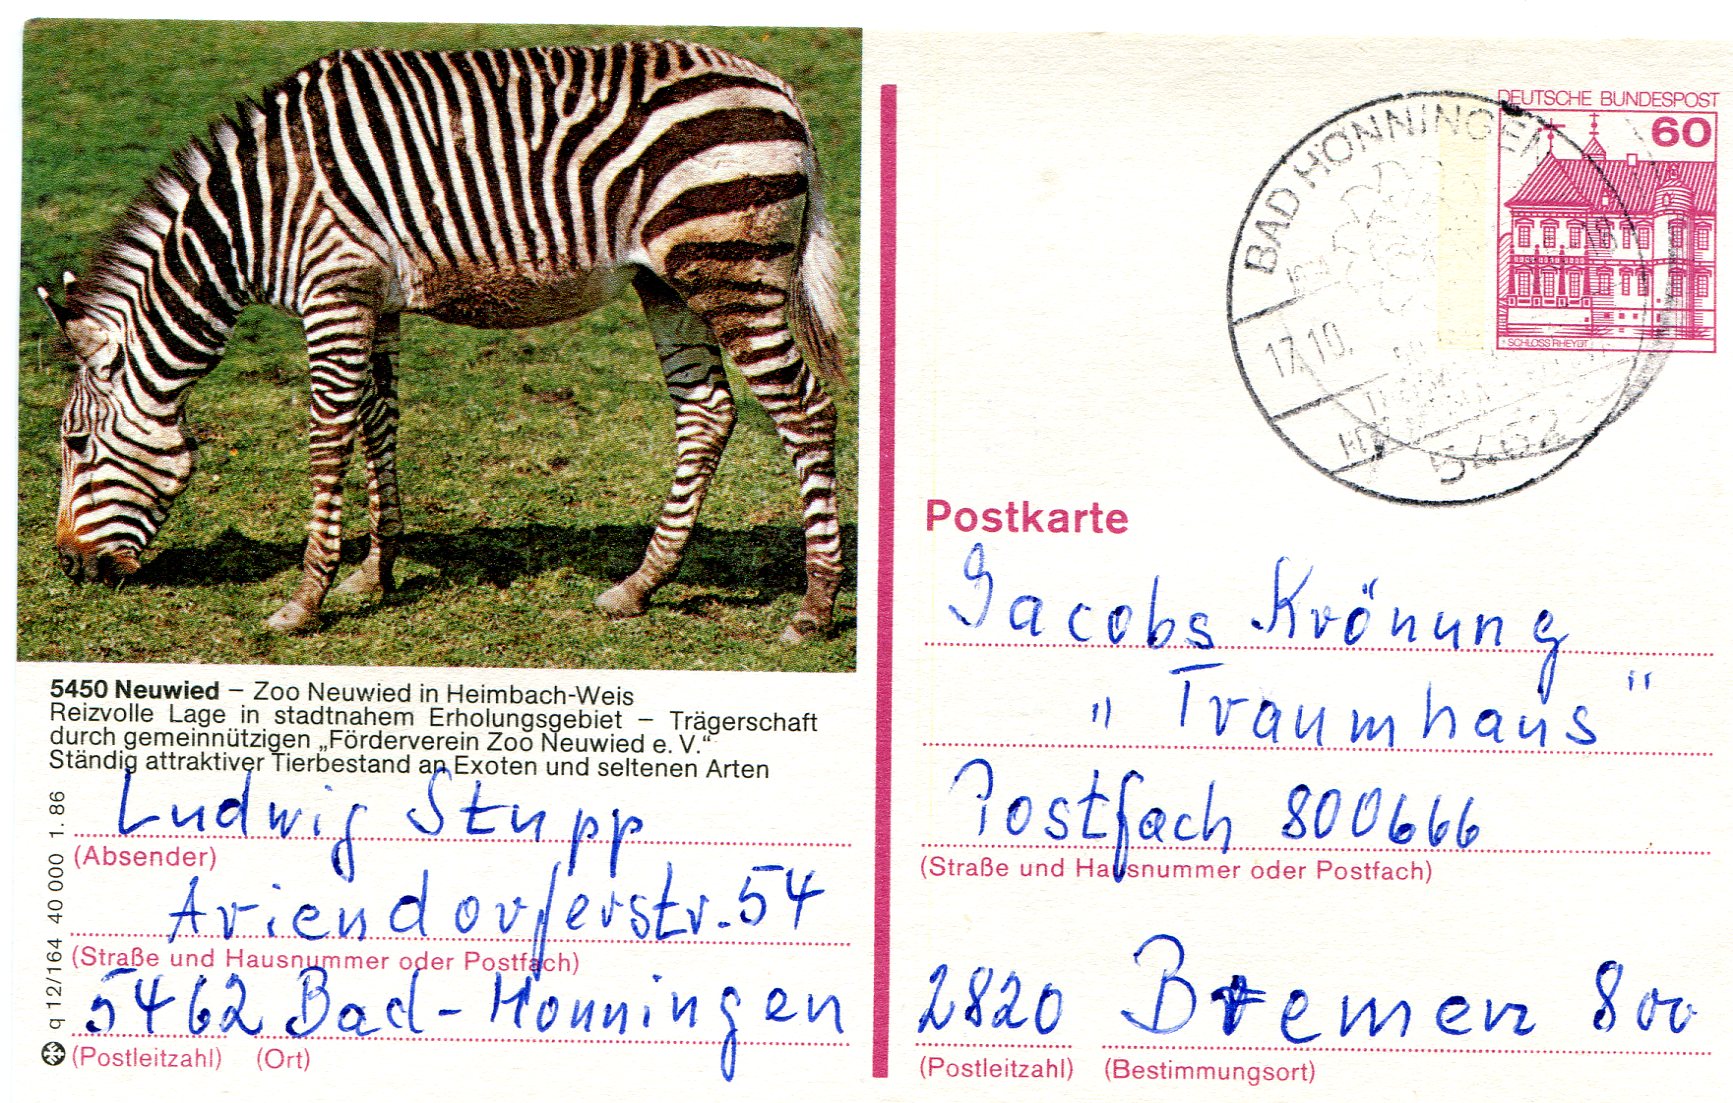 5450 Neuwied – Zoo Neuwied in Heimbach-Weis
Reizvolle Lage in stadtnahem Erholungsgebiet – Trägerschaft
durch gemeinnützigen „Förderverein Zoo Neuwied e. V.“
Ständig attraktiver Tierbestand an Exoten und seltenen Arten
Ludwig Stupp
(Absender)
Ariendorferstr. 54
(Straße und Hausnummer oder Postfach)
5462 Bad-Honningen
(Postleitzahl) (Ort)
q 12/164 40 000 1. 86
DEUTSCHE BUNDESPOST
60
SCHLOSS RHEYDT
BAD HÖNNINGEN
17.10.
5462
Postkarte
Jacobs Krönung
" Traumhaus "
Postfach 800666
(Straße und Hausnummer oder Postfach)
2820 Bremen 800
(Postleitzahl) (Bestimmungsort)